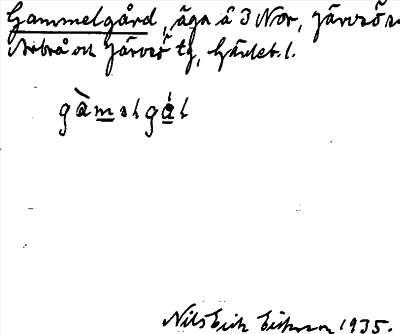 Gammelgård, äga å 3 Nor, Järvsö s
Arbrå och Järvsö tg, Gärdet. l.
gàmalgål
Nils Erik Eriksson 1935.